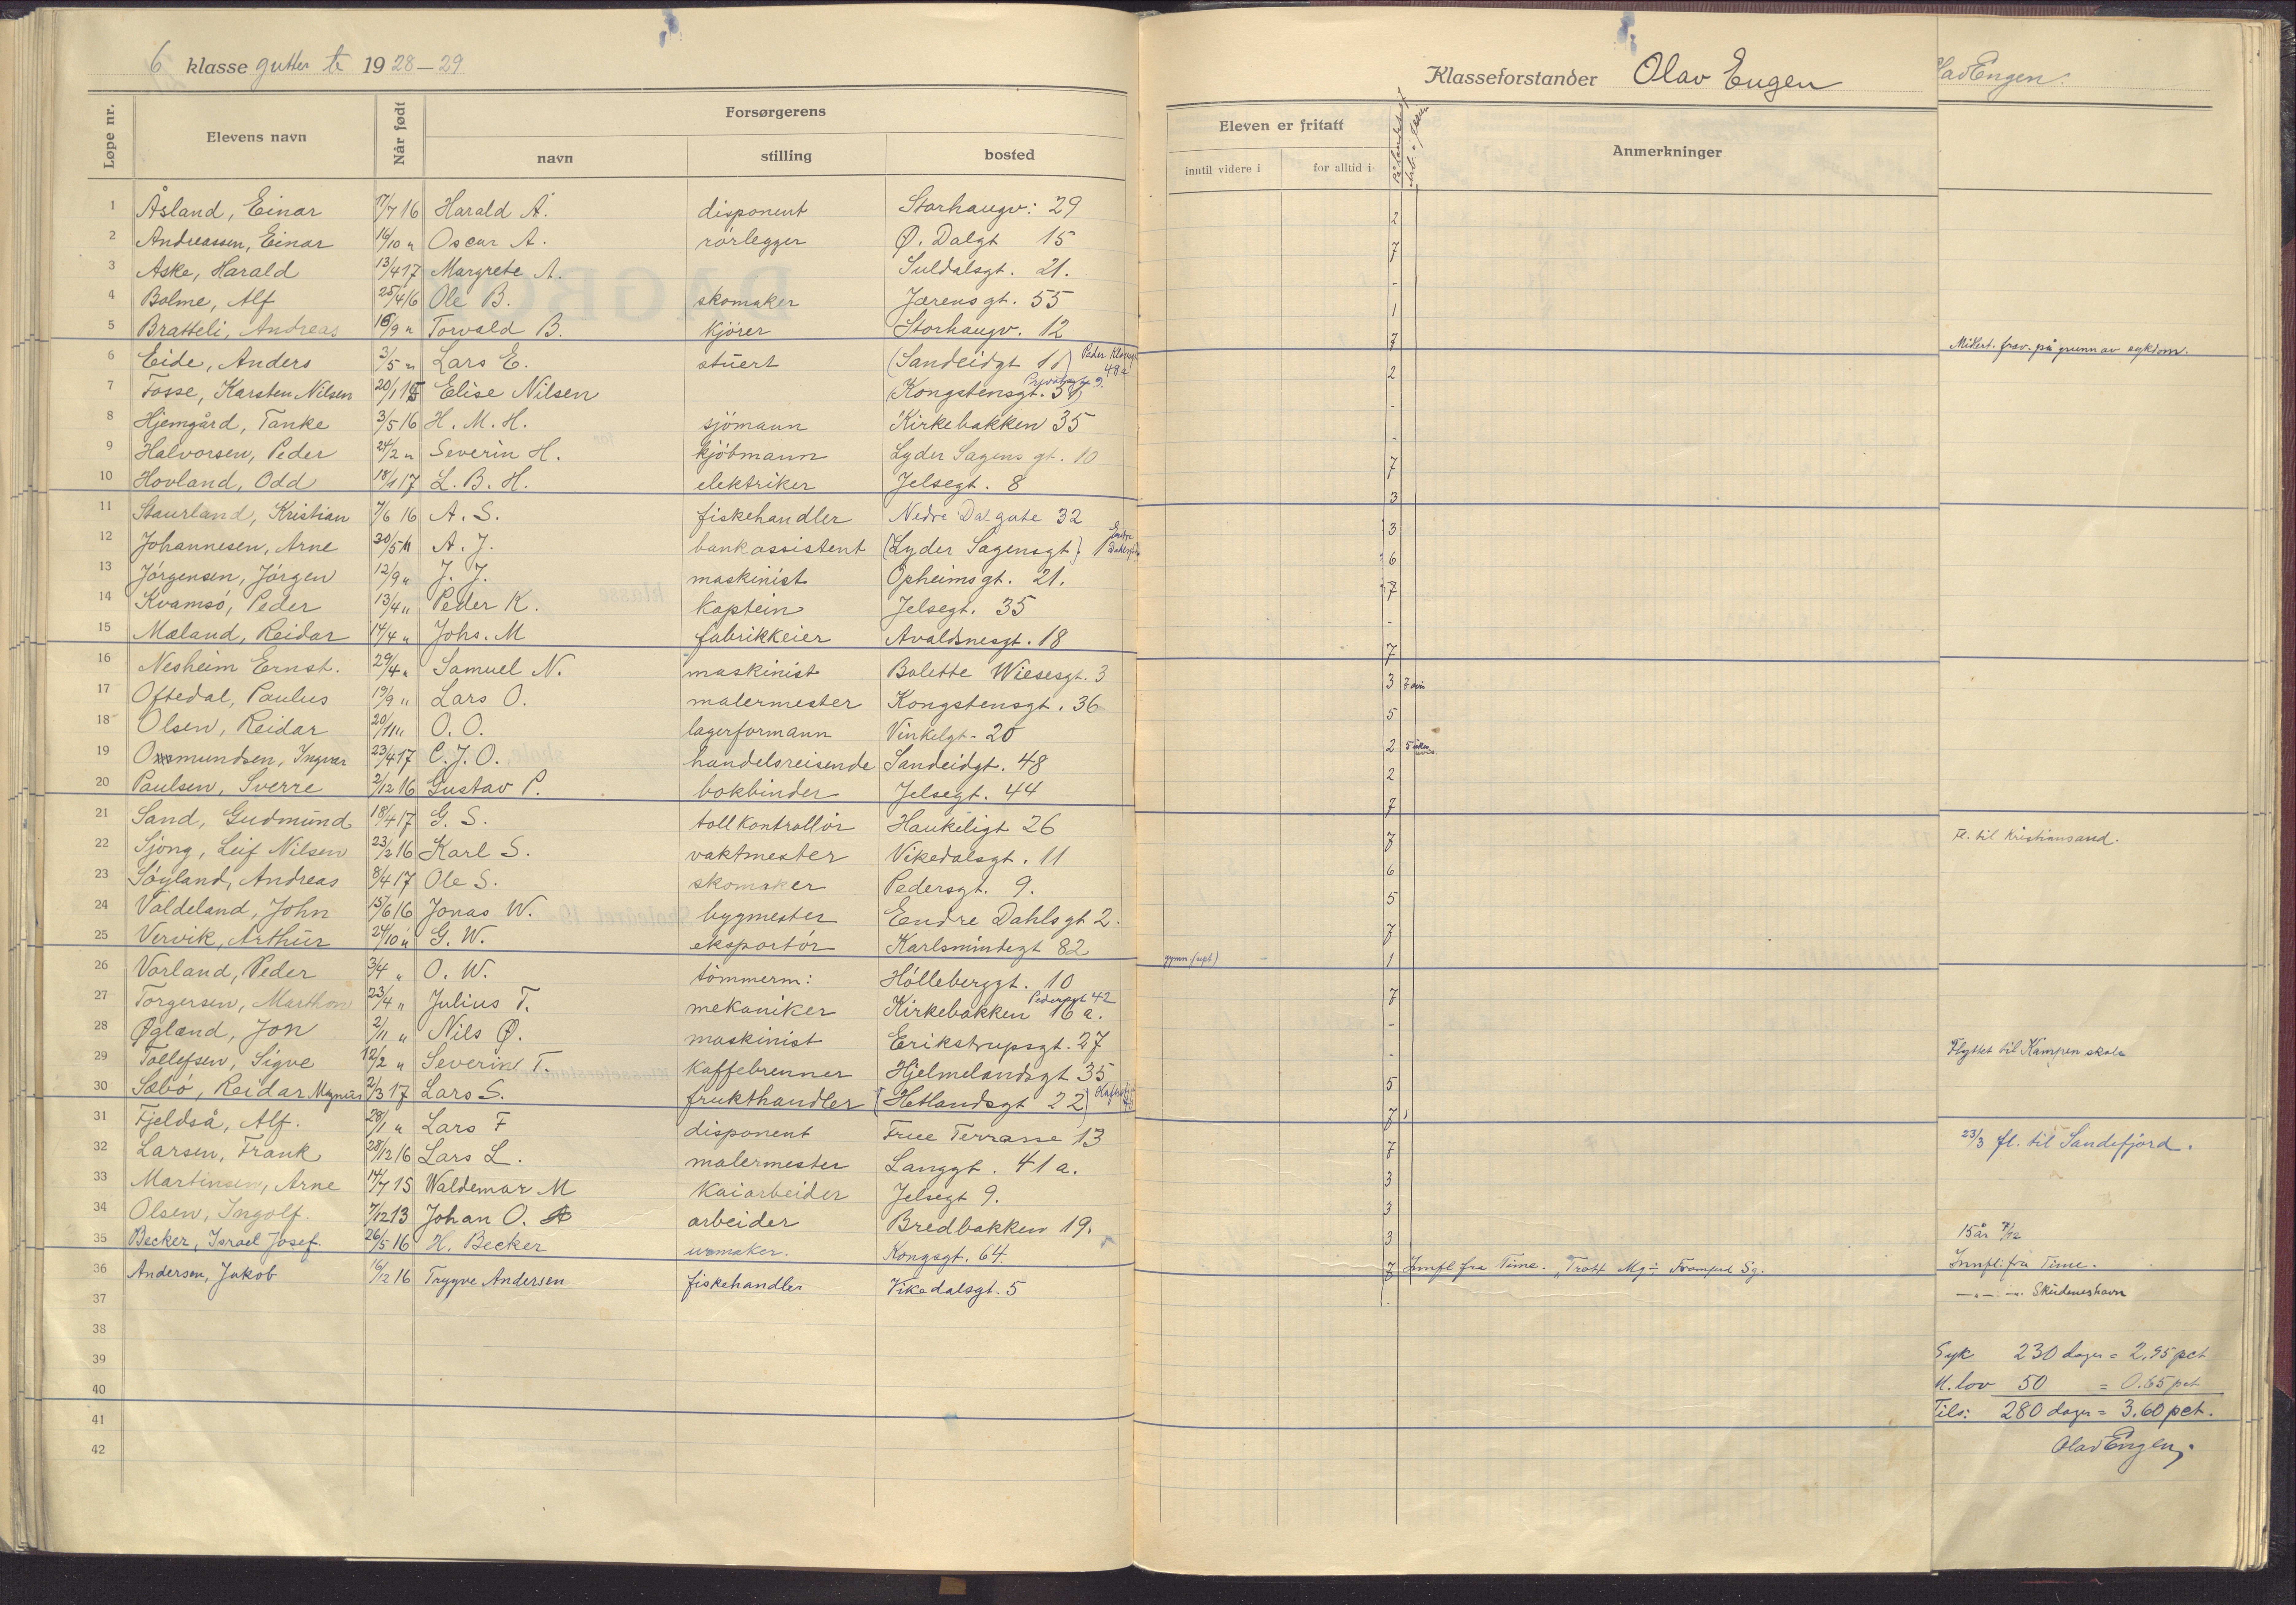 6 klasse gutter te 1928–29
Løpe nr. Elevens navn Når født Forsørgerens
navn stilling bosted
1 Åsland, Einar 17/7 16 Harald Å. disponent Storhaugv: 29
2 Andreassen, Einar 16/10 " Oscar A. rörlegger Ø. Dalgt 15
3 Aske, Harald 13/4 17 Margrete A. Suldalsgt. 21.
4 Bolme, Alf 25/4 16 Ole B. skomaker Jærensgt. 55
5 Bratteli, Andreas 16/9 " Torvald B. kjörer Storhaugv. 12
6 Eide, Anders 3/5 " Lars E. stuert (Sandeidgt 11) Peder Klowsgt 48a
7 Fosse, Karsten Nilsen 20/1 15 Elise Nilsen (Kongstensgt. 31)
8 Hjemgård, Tanke 3/5 16 H. M. H. sjömann Kirkebakken 35
9 Halvorsen, Peder 24/2 " Severin H. kjöbmann Lyder Sagens gt. 10
10 Hovland, Odd 18/1 17 L. B. H. elektriker Jelsegt. 8
11 Staurland, Kristian 7/6 16 A. S. fiskehandler Nedre Dalgate 32
12 Johannesen, Arne 30/5 " A. J. bankassistent (Lyder Sagensgt) Endre Dahlsgt
13 Jörgensen, Jörgen 12/9 " J. J. maskinist Opheimsgt. 21.
14 Kvamsö, Peder 13/4 " Peder K. kaptein Jelsegt. 35
15 Mæland, Reidar 14/4 " Johs. M fabrikkeier Avaldsnesgt. 18
16 Nesheim Ernst. 29/4 " Samuel N. maskinist Bolette Wiesesgt. 3
17 Oftedal, Paulus 19/9 " Lars O. malermester Kongstensgt. 36
18 Olsen, Reidar 20/11 " O. O. lagerformann Vinkelgt. 20
19 Ommundsen, Ingvar 23/4 17 C. J. O. handelsreisende Sandeidgt. 48
20 Paulsen, Sverre 2/12 16 Gustav P. bokbinder Jelsegt. 44
21 Sand, Gudmund 18/4 17 G. S. tollkontrollör Haukeligt 26
22 Sjöng, Leif Nilsen 23/2 16 Karl S. vaktmester Vikedalsgt. 11
23 Söyland, Andreas 8/4 17 Ole S. skomaker Pedersgt. 9.
24 Valdeland, John 15/6 16 Jonas W. bygmester Endre Dahlsgt 2.
25 Vervik, Arthur 24/10 " G. W. eksportör Karlsmindegt 82
26 Vorland, Peder 3/4 " O. W. tömmerm: Hölleberggt. 10
27 Torgersen, Marthon 23/4 " Julius T. mekaniker Kirkebakken 16 a. Pedersgt 42
28 Øgland, Jon 2/11 " Nils Ø. maskinist Erikstrupsgt. 27
29 Tollefsen, Sigve 12/2 " Severin T. kaffebrenner Hjelmelandsgt 35
30 Sæbö, Reidar Magnus 2/3 17 Lars S. frukthandler (Hetlandsgt 22)
31 Fjeldså, Alf. 28/1 " Lars F disponent Frue Terrasse 13
32 Larsen, Frank 28/12 16 Lars L. malermester Langgt. 41 a.
33 Martinsen, Arne 14/7 15 Waldemar M kaiarbeider Jelsegt 9.
34 Olsen, Ingolf. 7/12 13 Johan O. arbeider Bredbakken 19.
35 Becker, Israel Josef. 26/5 16 H. Becker urmaker. Kongsgt. 64.
36 Andersen, Jakob 16/12 16 Trygve Andersen fiskehandler Vikedalsgt. 5
37
38
39
40
41
42
Klasseforstander Olav Engen
Eleven er fritatt Anmerkninger
inntil videre i for alltid i
2
7
-
1
7
2
-
-
7
3
3
6
7
-
7
3 7 avis
5
2 5
2
7
7
6
5
7
gymn. (sept) - 1
7
-
-
5
7
7
3
3
3
7 Innfl fra Time.
lav Engen.
Midlert. frav. på grunn av sykdom.
Fl. til Kristiansand.
Flyttet til Kampen skole
23/3 fl. til Sandefjord.
15 år 7/12
Innfl. fra Time.
—„— —„— Skudeneshavn
Syk 230 dager = 2,95 pct
M. lov 50 = 0.65 pct
Tils: 280 dager = 3.60 pct.
Olav Engen.